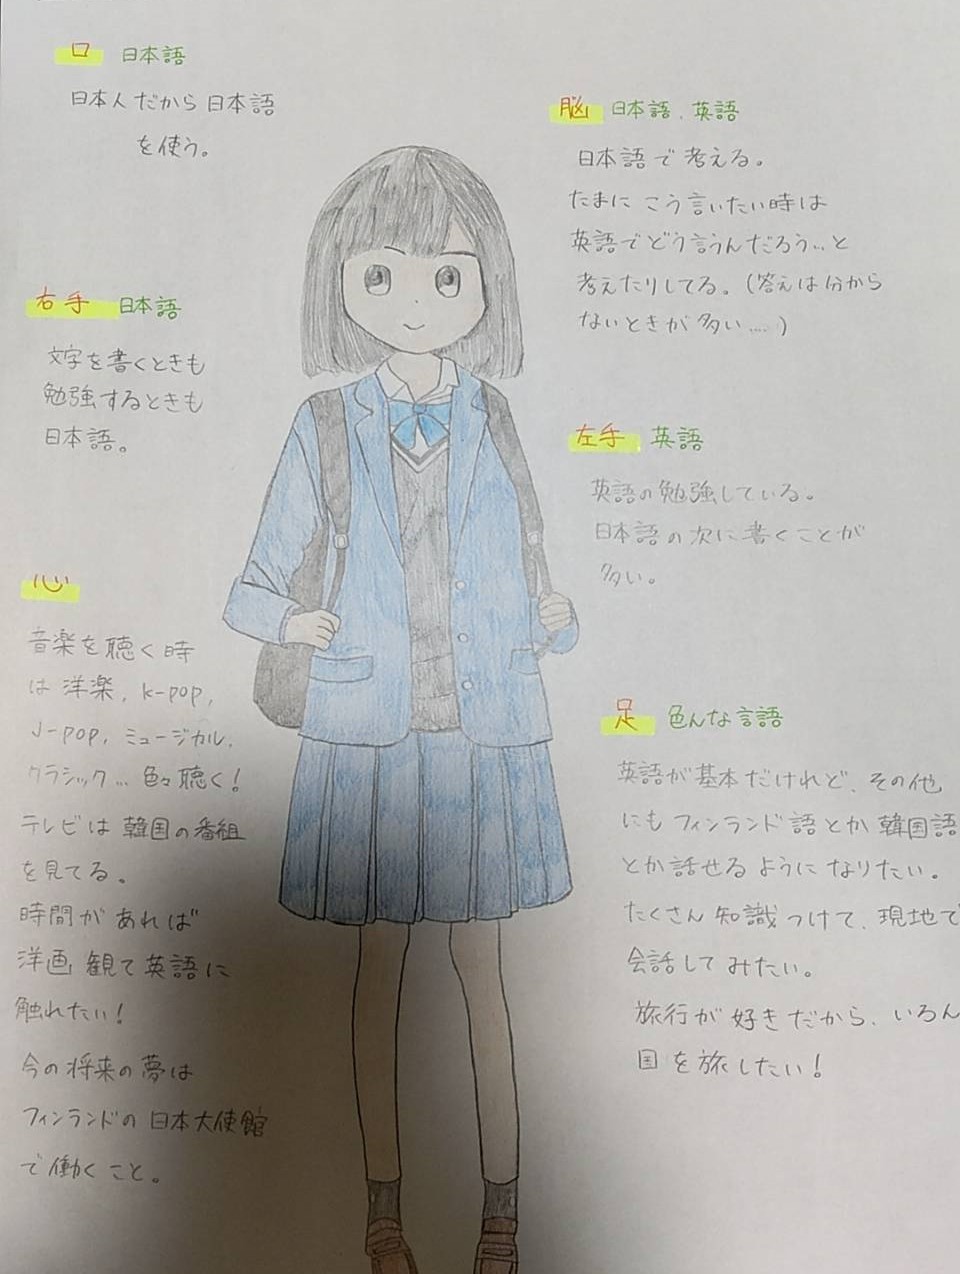 口 日本語
日本人だから日本語
を使う。
右手 日本語
文字を書くときも
勉強するときも
日本語。
心
音楽を聴く時
は洋楽、K-pop,
J-pop, ミュージカル、
クラシック… 色々聴く!
テレビは韓国の番組
を見てる。
時間があれば
洋画観て英語に
触れたい!
今の将来の夢は
フィンランドの日本大使館
で働くこと。
脳 日本語、英語
日本語で考える。
たまにこう言いたい時は
英語でどう言うんだろう…と
考えたりしてる。(答えは分から
ないときが多い….)
左手 英語
英語の勉強している。
日本語の次に書くことが
多い。
足 色んな言語
英語が基本だけれど、その他
にもフィンランド語とか韓国語
とか話せるようになりたい。
たくさん知識つけて、現地で
会話してみたい。
旅行が好きだから、いろん
国を旅したい!